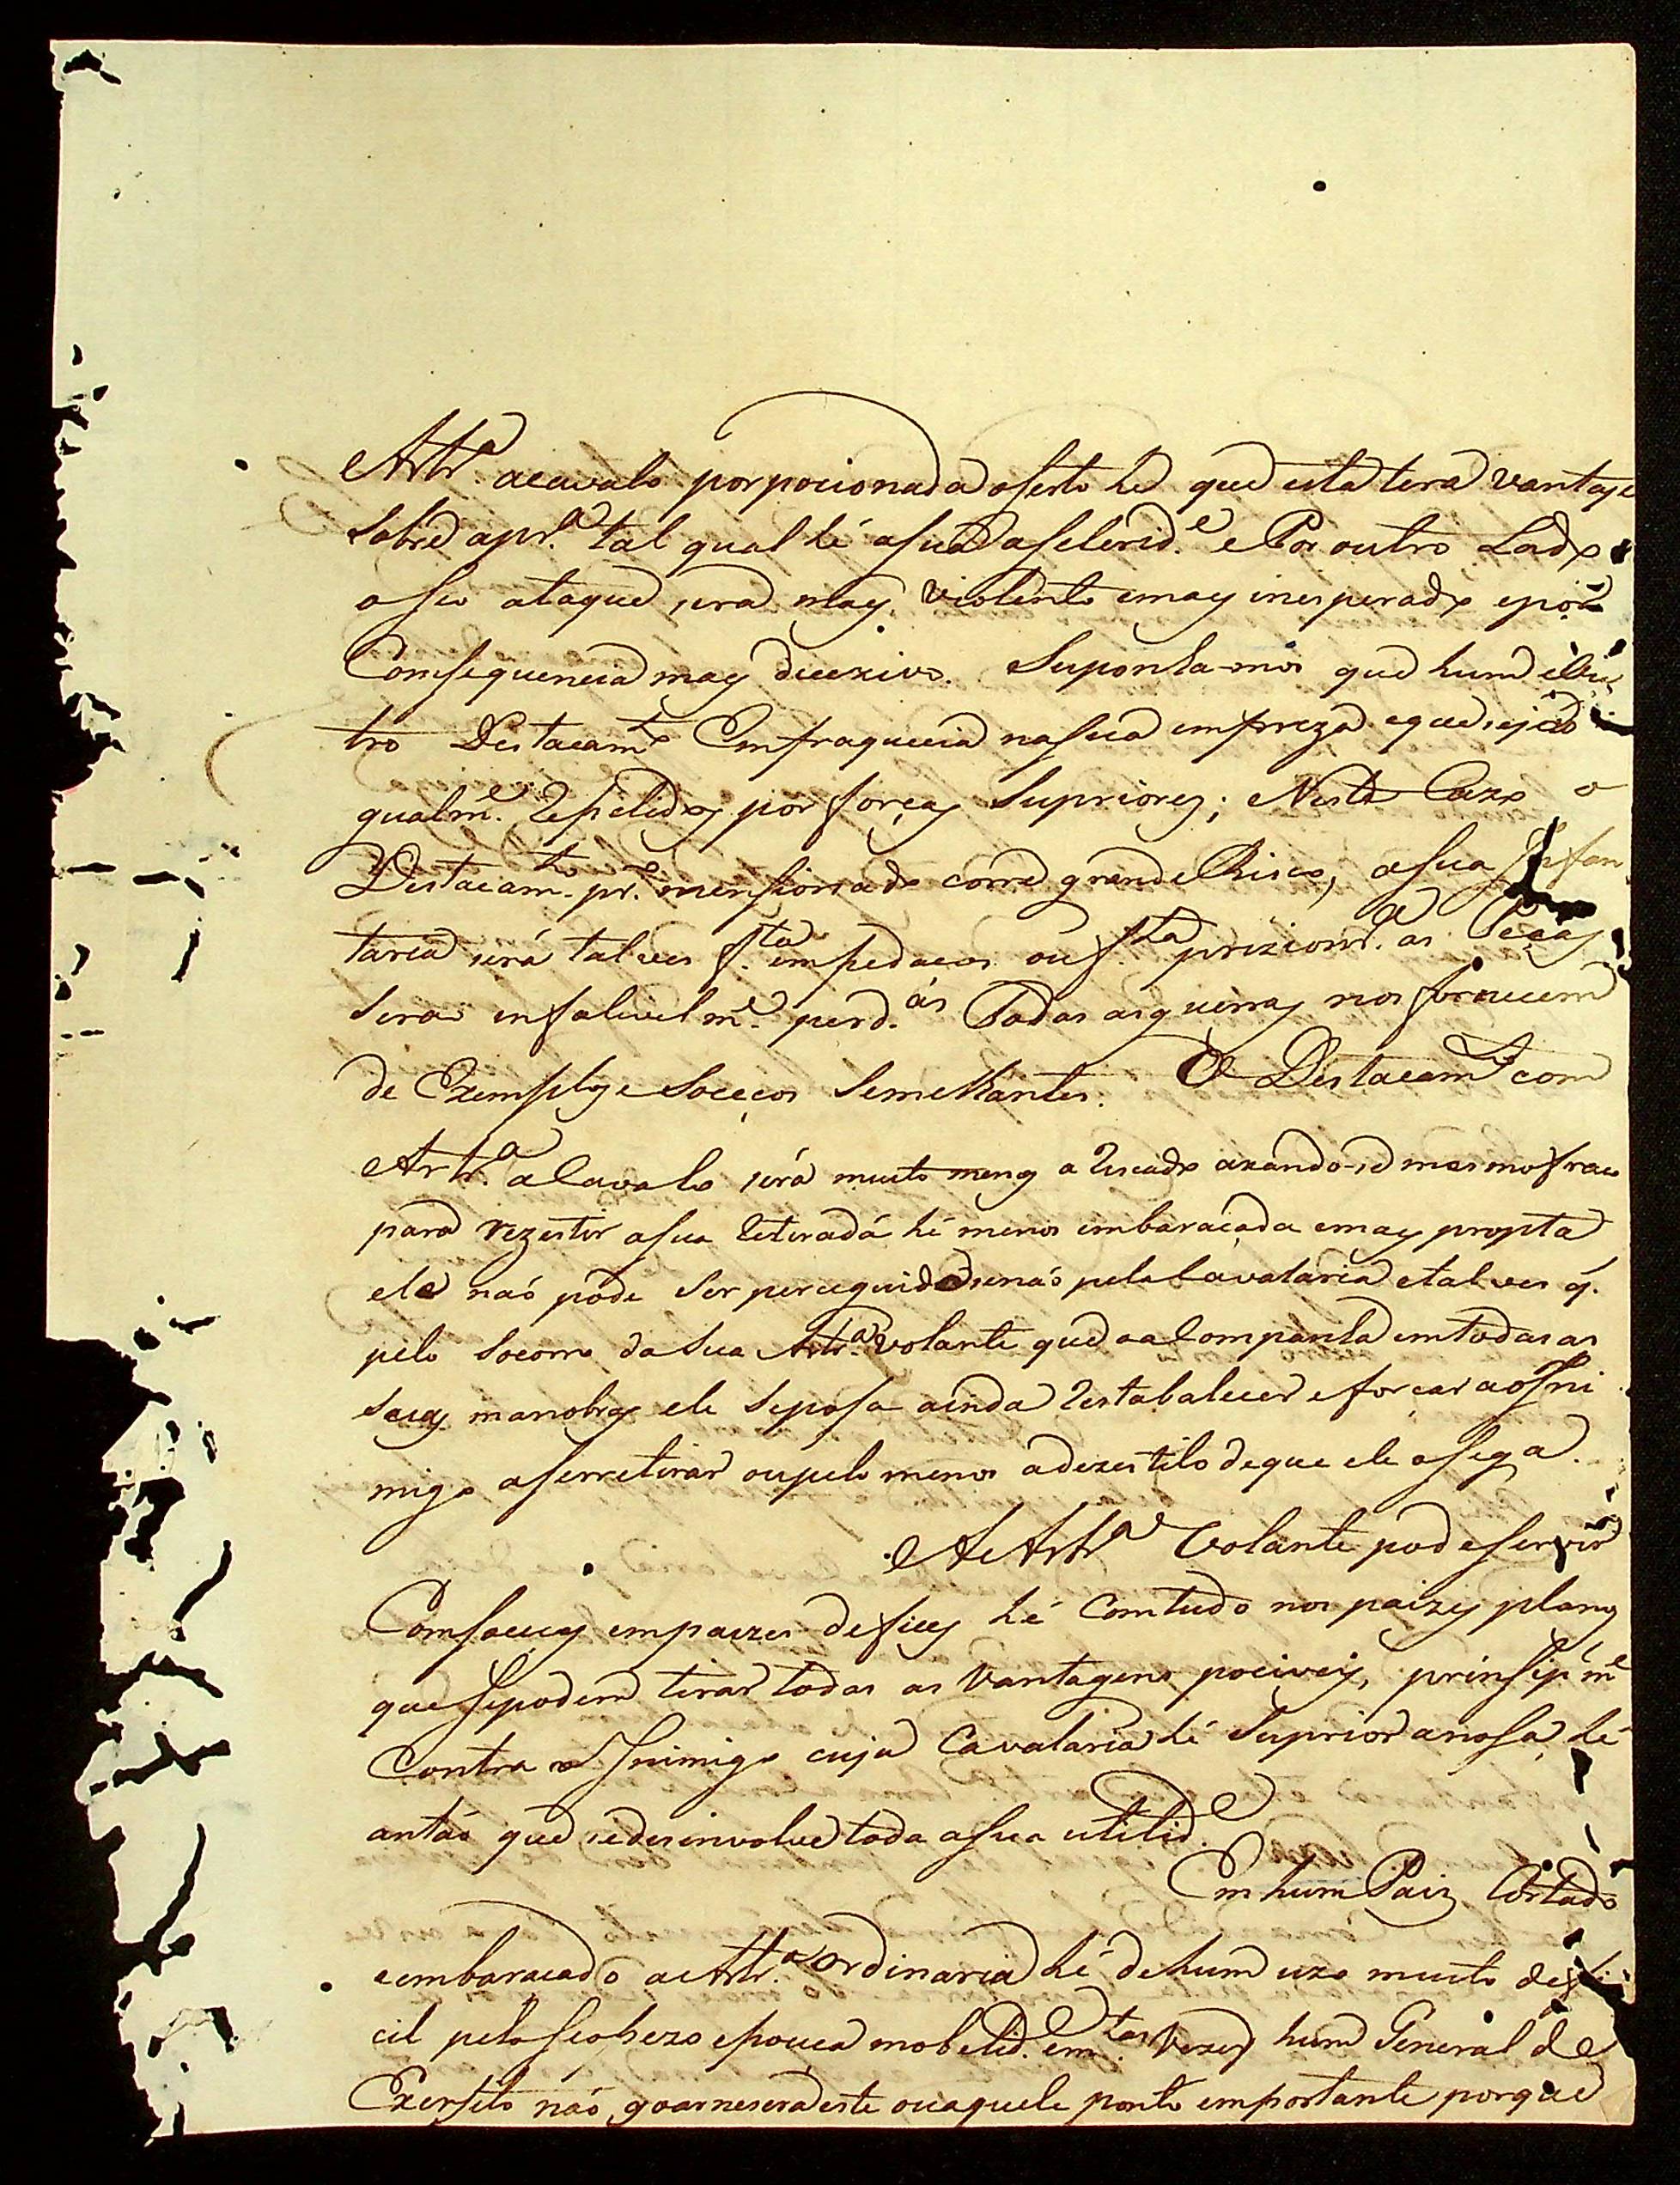 Artr.ª acavalo porpocionada oserto he que esta terá vantaje
Sobre apr.ª tal qual hé asua aselerid.e e Por outro Lado
oseo ataque será mays violento emays inesperado epor
Comsequencia mays decezivo. Suponha-mos que hum e ou
tro Destacam.to Emfraquecia nasua empreza eque sejaõ
gualm.e Repelidos por forças Supriores; Neste Cazo o
Destacam.to pr.o mensionado corre grande Risco, asua Infan
taria será talves f.ta empedaços ou f.ta prizionr.a as Peças
Seraõ infalivelm.e perd.as Todas asguerras nos fornecem
de Exemplos e Soceços Semelhantes. O Destacam.to com
Artr.ª aCavalo será muito menos aRiscado axando-se mesmo fraco
para rezestir asua Retirada hé menos embaraçada emays propta
ele naõ pode Ser perceguido senaõ pela Cavalaria etalves q.
pelo Socorro da Sua Artr.ª volante que oaCompanha emtodas as
Suas manobras ele Seposa ainda Restabalecer eforçar aoIni
migo aserretirar oupelo menos adezestilo deque ele osega.
A Artr.ª Volante pode servir
Comsoceços empaizes deficeys hé Comtudo nos paizes planos
que Sepodem tirar todas as Vantagens pociveis, prinsip.m.e
Contra o Inimigo cuja Cavalaria hé Suprior anosa, hé
antaõ que sedesinvolve toda asua utilid.e
Em hum Paiz Cortado
eembaraçado aArtr.ª ordinaria hé dehum uzo muito defi
cil pelo Seo pezo epouca mobelid.e em.tas Vezes hum General de
Exersito naõ goarneserá este ouaquele ponto emportante porque